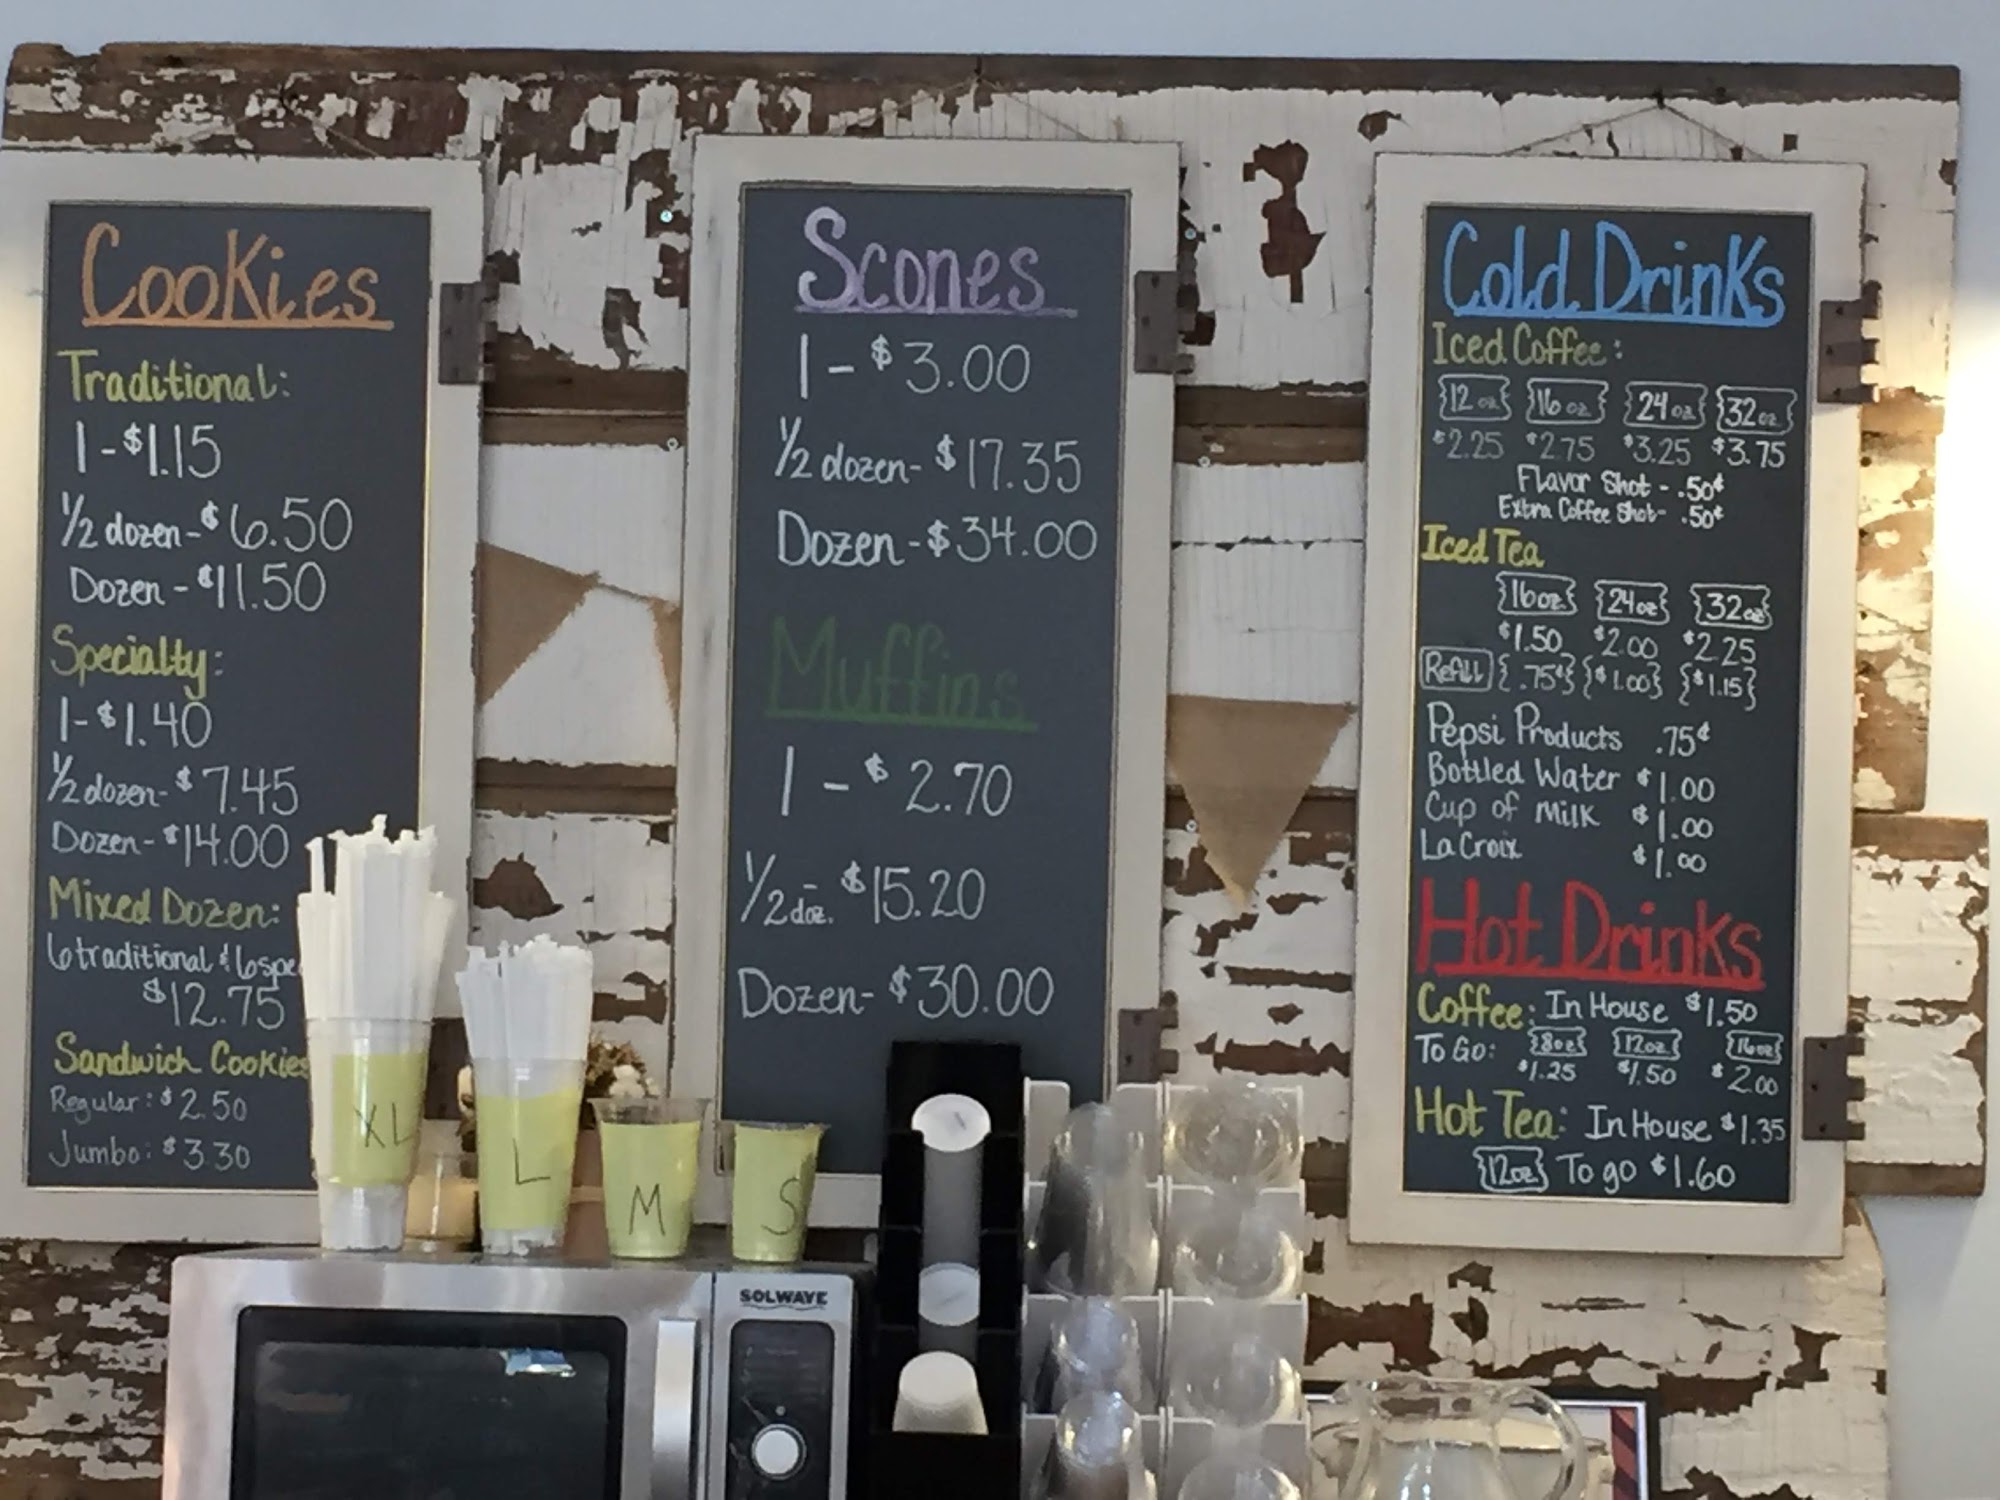 Cookies
Traditional:
1 - $1.15
1/2 dozen - $6.50
Dozen - $11.50
Specialty:
1 - $1.40
1/2 dozen - $7.45
Dozen - $14.00
Mixed Dozen:
6 traditional & 6 spe
$12.75
Sandwich Cookies
Regular: $2.50
Jumbo: $3.30
Scones
1 - $3.00
1/2 dozen - $17.35
Dozen - $34.00
Muffins
1 - $2.70
1/2 doz. - $15.20
Dozen - $30.00
Cold Drinks
Iced Coffee:
12 oz 16 oz 24 oz 32 oz
$2.25 $2.75 $3.25 $3.75
Flavor Shot - .50¢
Extra Coffee Shot - .50¢
Iced Tea
16 oz 24 oz 32 oz
$1.50 $2.00 $2.25
Refill {.75¢} {$1.00} {$1.15}
Pepsi Products .75¢
Bottled Water $1.00
Cup of Milk $1.00
La Croix $1.00
Hot Drinks
Coffee: In House $1.50
To Go: 8oz 12oz 16oz
$1.25 $1.50 $2.00
Hot Tea: In House $1.35
12oz To go $1.60
XL
L
M
S
SOLWAVE